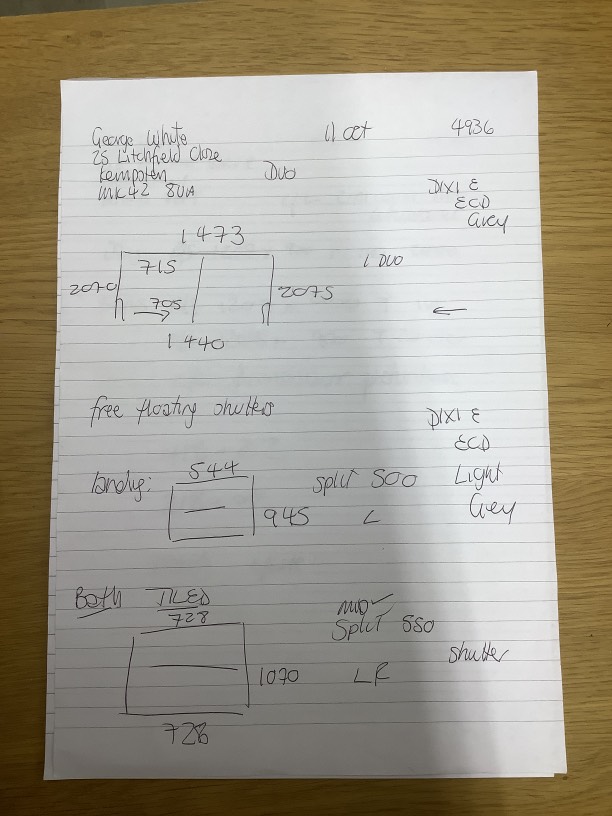 George White 11 oct 4936
25 Litchfield Close
Kempston DUO
MK42 8UA
DIXIE
ECD
Grey
1473
715 1 DUO
2070 2075
705
1440
free floating shutters DIXIE
ECD
544 Split 500 Light
945 L Grey
Both TILED
728
MID
Split 550
Shutter
1070 LR
728